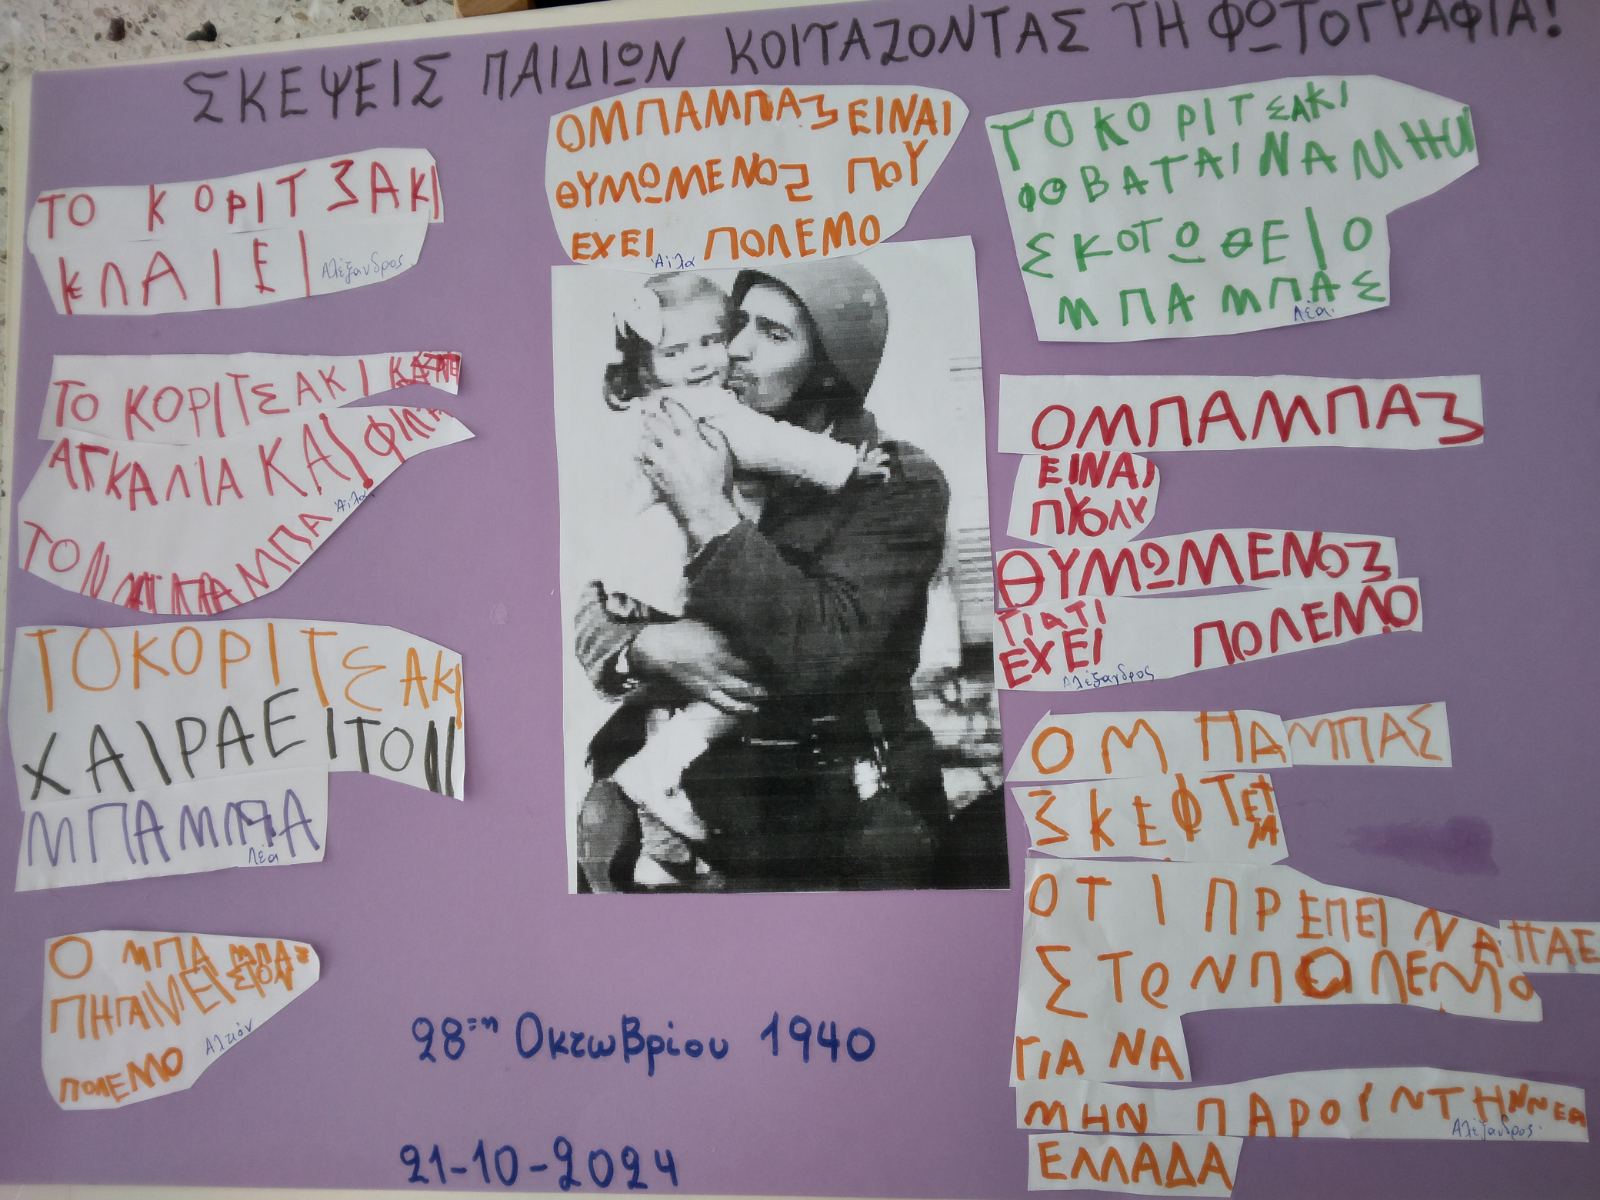 ΣΚΕΨΕΙΣ ΠΑΙΔΙΩΝ ΚΟΙΤΑΖΟΝΤΑΣ ΤΗ ΦΩΤΟΓΡΑΦΙΑ!
ΤΟ ΚΟΡΙΤΣΑΚΙ
ΚΛΑΙΕΙ
Αλέξανδρος
ΤΟ ΚΟΡΙΤΣΑΚΙ
ΑΓΚΑΛΙΑ ΚΑΙ
ΤΟΝ ΜΠΑΜΠΑ
Άιλα
ΤΟ ΚΟΡΙΤΣΑΚΙ
ΧΑΙΡΑΕΙ ΤΟΝ
ΜΠΑΜΠΑ
Λέα
Ο ΜΠΑΜΠΑΣ
ΠΗΓΑΙΝΕΙ ΣΤΟΝ
ΠΟΛΕΜΟ
Αλκιόν
ΟΜΠΑΜΠΑΣ ΕΙΝΑΙ
ΘΥΜΩΜΕΝΟΣ ΠΟΥ
ΕΧΕΙ ΠΟΛΕΜΟ
Άιλα
28=η Οκτωβρίου 1940
21-10-2024
ΤΟ ΚΟΡΙΤΣΑΚΙ
ΦΟΒΑΤΑΙ ΝΑ ΜΗΝ
ΣΚΟΤΩΘΕΙ Ο
ΜΠΑΜΠΑΣ
Λέα.
ΟΜΠΑΜΠΑΣ
ΕΙΝΑΙ
ΠΥΟΛΥ
ΘΥΜΩΜΕΝΟΣ
ΓΙΑΤΙ
ΕΧΕΙ ΠΟΛΕΜΟ
Αλέξανδρος
Ο ΜΠΑΜΠΑΣ
ΣΚΕΦΤΕΤΑΙ
ΟΤΙ ΠΡΕΠΕΙ ΝΑ ΠΑΕΙ
ΣΤΟΝ ΠΟΛΕΜΟ
ΓΙΑ ΝΑ
ΜΗΝ ΠΑΡΟΙΝ ΤΗΝ
Αλέξανδρος.
ΕΛΛΑΔΑ